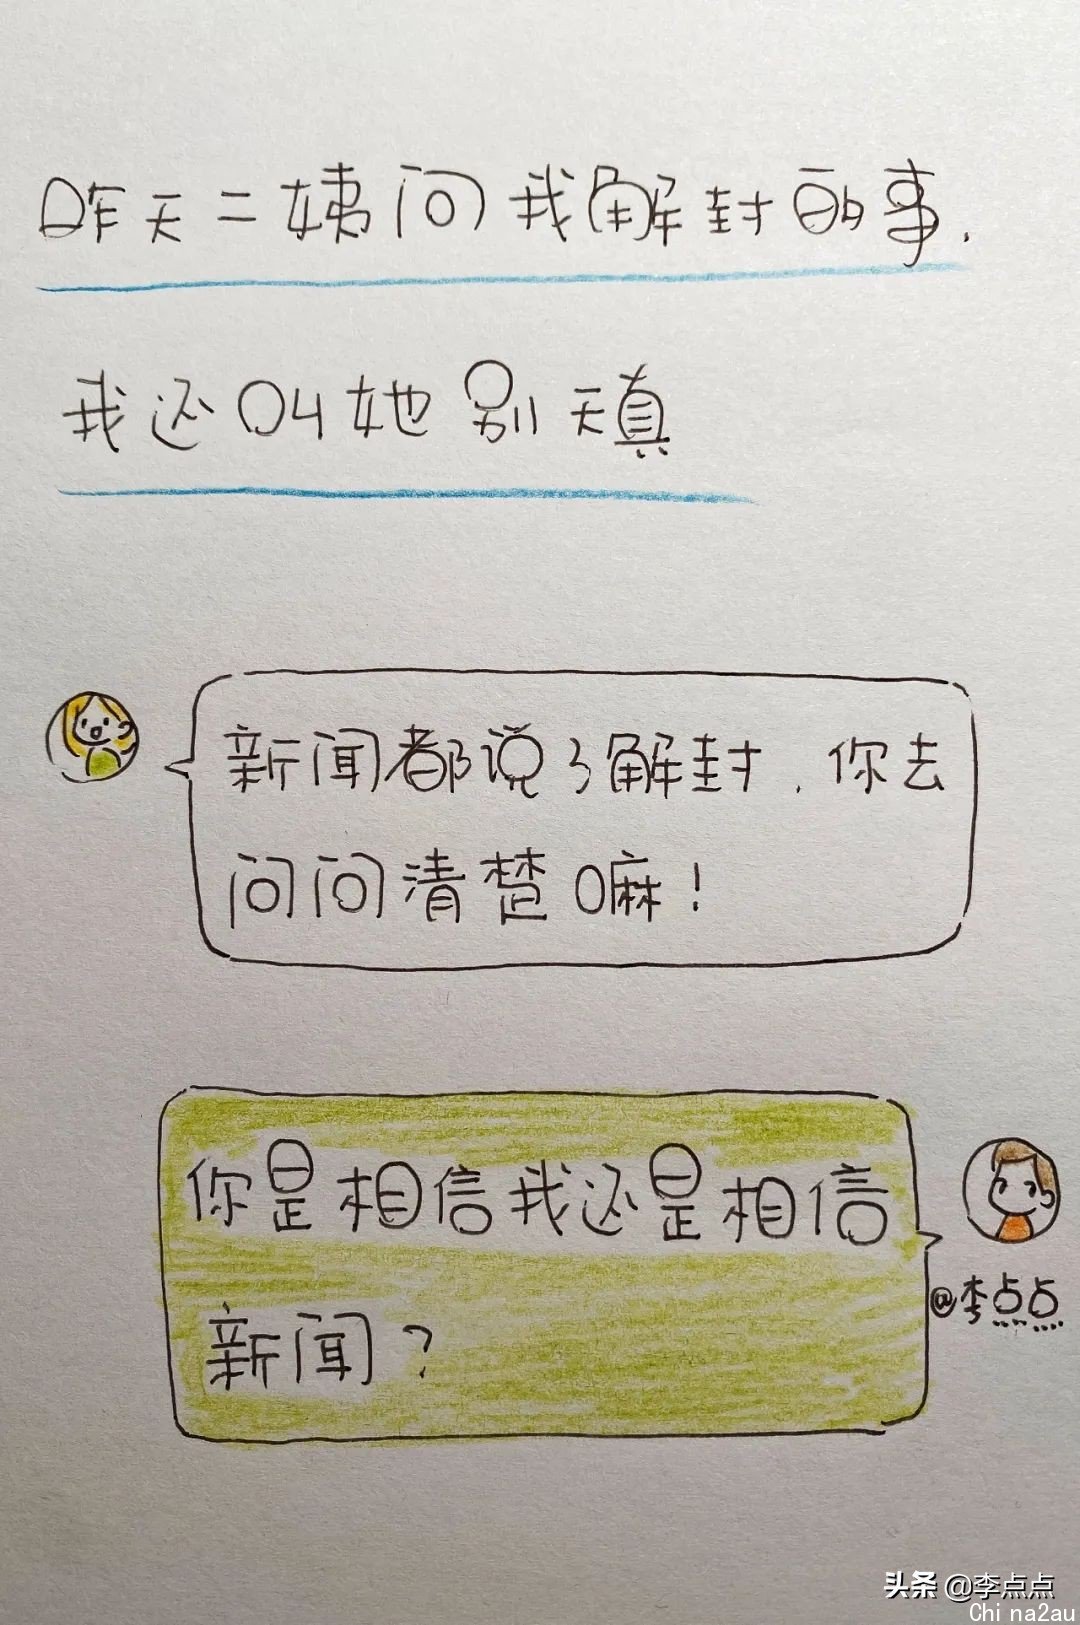 昨天二姨问我解封的事.
我还叫她别天真
新闻都说了解封.你去
问问清楚嘛!
你是相信我还是相信
新闻?
@李点点
头条 @李点点
China2au